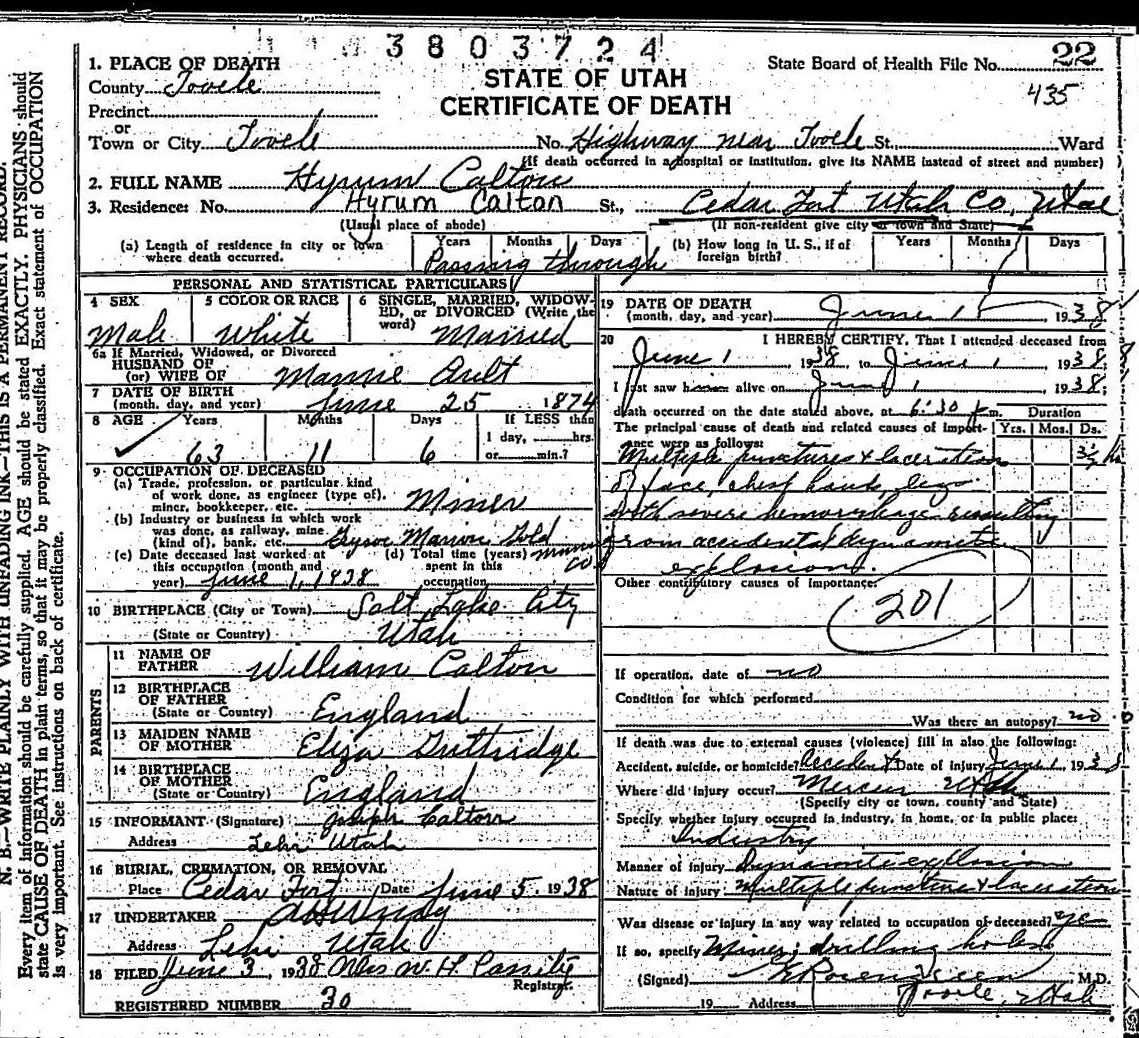 3803724
1. PLACE OF DEATH
STATE OF UTAH
CERTIFICATE OF DEATH
State Board of Health File No. 22
435
County Tooele
Precinct
or
Town or City Tooele No. Highway near Tooele St., Ward
(If death occurred in a hospital or institution, give its NAME instead of street and number)
2. FULL NAME Hyrum Calton
3. Residence: No. Hyrum Calton St., Cedar Fort Utah Co, Utah
(Usual place of abode) (If non-resident give city or town and State)
(a) Length of residence in city or town where death occurred. Years Months Days
Passing through
(b) How long in U. S., if of foreign birth? Years Months Days
PERSONAL AND STATISTICAL PARTICULARS
4 SEX
Male
5 COLOR OR RACE
White
6 SINGLE, MARRIED, WIDOWED, or DIVORCED (Write the word)
Married
6a If Married, Widowed, or Divorced
HUSBAND OF
(or) WIFE OF Mannie Ault
7 DATE OF BIRTH
(month, day, and year) June 25 1874
8 AGE Years Months Days If LESS than
1 day, hrs.
63 11 6 or min.?
9 OCCUPATION OF DECEASED
(a) Trade, profession, or particular kind
of work done, as engineer (type of),
miner, bookkeeper, etc. Miner
(b) Industry or business in which work
was done, as railway, mine
(kind of), bank, etc. Gold
(c) Date deceased last worked at
this occupation (month and
year) June 1, 1938
(d) Total time (years)
spent in this
occupation
10 BIRTHPLACE (City or Town) Salt Lake City
(State or Country) Utah
PARENTS
11 NAME OF
FATHER William Calton
12 BIRTHPLACE
OF FATHER
(State or Country) England
13 MAIDEN NAME
OF MOTHER Eliza Guttridge
14 BIRTHPLACE
OF MOTHER
(State or Country) England
15 INFORMANT (Signature) Joseph Calton
Address Lehi Utah
16 BURIAL, CREMATION, OR REMOVAL
Place Cedar Fort Date June 5, 1938
17 UNDERTAKER
Address Lehi Utah
18 FILED June 3, 1938 Mrs W. H. Cassity
Registrar.
REGISTERED NUMBER 30
19 DATE OF DEATH
(month, day, and year) June 1 1938
20 I HEREBY CERTIFY, That I attended deceased from
June 1 1938, to June 1 1938.
I last saw him alive on June 1 1938.
death occurred on the date stated above, at 6:30 p.m. Duration
The principal cause of death and related causes of importance were as follows: Yrs. Mos. Ds.
Multiple punctures & laceration
of face, chest hands, legs
with severe hemorrhage resulting
from accidental dynamite
explosion.
Other contributory causes of importance:
201
If operation, date of no
Condition for which performed
Was there an autopsy? no
If death was due to external causes (violence) fill in also the following:
Accident, suicide, or homicide? Accident Date of injury June 1, 1938
Where did injury occur? Mercur Utah
(Specify city or town, county and State)
Specify whether injury occurred in industry, in home, or in public place:
Industry
Manner of injury Dynamite explosion
Nature of injury Multiple puncture & laceration
Was disease or injury in any way related to occupation of deceased? yes
If so, specify Miner; drilling holes
(Signed) M.D.
19 Address Tooele, Utah
N. B.—WRITE PLAINLY WITH UNFADING INK—THIS IS A PERMANENT RECORD.
Every item of information should be carefully supplied. AGE should be stated EXACTLY. PHYSICIANS should
state CAUSE OF DEATH in plain terms, so that it may be properly classified. Exact statement of OCCUPATION
is very important. See instructions on back of certificate.